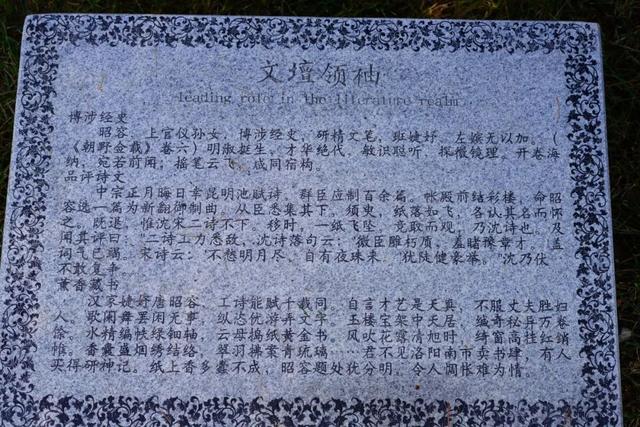 文坛领袖
leading role in the literature realm
博涉经史
昭容,上官仪孙女,博涉经史,研精文笔,班婕妤、左嫔无以加。(
《朝野佥载》卷六)明淑挺生,才华绝代,敏识聪听,探微镜理。开卷海
纳,宛若前闻;摇笔云飞,成同宿构。
品评诗文
中宗正月晦日幸昆明池赋诗,群臣应制百余篇。帐殿前结彩楼,命昭
容选一篇为新翻御制曲。从臣悉集其下,须臾,纸落如飞,各认其名而怀
之。既退,惟沈宋二诗不下。移时,一纸飞坠,竞取而观,乃沈诗也。及
闻其评曰:"二诗工力悉敌,沈诗落句云:'微臣雕朽质,羞睹豫章才',盖
词气已竭。宋诗云:'不愁明月尽,自有夜珠来',犹陡健豪举。"沈乃伏
不敢复争
薰香藏书
汉家婕妤唐昭容,工诗能赋千载同。自言才艺是天真,不服丈夫胜妇
人。歌阑舞罢闲无事,纵恣优游弄文字。玉楼宝架中天居,缄奇秘异万卷
徐。水精编帙绿钿轴,云母捣纸黄金书。风吹花露清旭时,绮窗高挂红绡
帷。香囊盛烟绣结络,翠羽拂案青琉璃……君不见洛阳南市卖书肆,有人
买得研神记。纸上香多蠹不成,昭容题处犹分明,令人惆怅难为情。